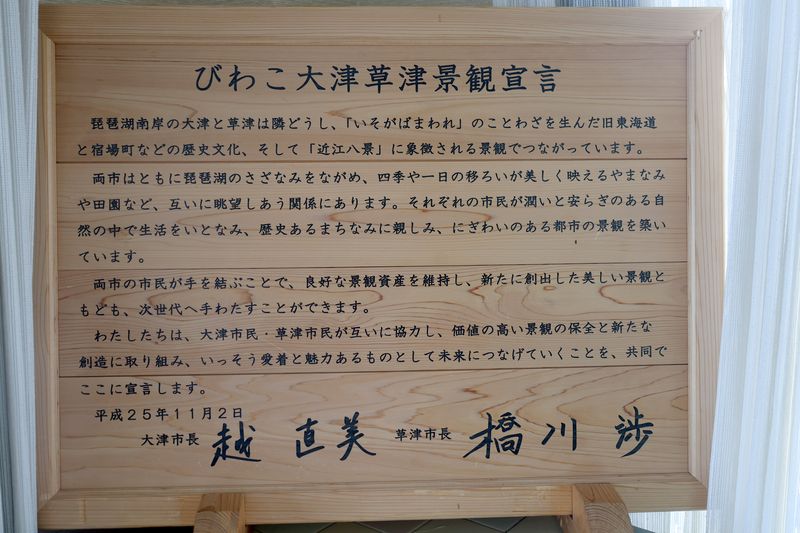 びわこ大津草津景観宣言
琵琶湖南岸の大津と草津は隣どうし、「いそがばまわれ」のことわざを生んだ旧東海道
と宿場町などの歴史文化、そして「近江八景」に象徴される景観でつながっています。
両市はともに琵琶湖のさざなみをながめ、四季や一日の移ろいが美しく映えるやまなみ
や田園など、互いに眺望しあう関係にあります。それぞれの市民が潤いと安らぎのある自
然の中で生活をいとなみ、歴史あるまちなみに親しみ、にぎわいのある都市の景観を築い
ています。
両市の市民が手を結ぶことで、良好な景観資産を維持し、新たに創出した美しい景観と
もども、次世代へ手わたすことができます。
わたしたちは、大津市民・草津市民が互いに協力し、価値の高い景観の保全と新たな
創造に取り組み、いっそう愛着と魅力あるものとして未来につなげていくことを、共同で
ここに宣言します。
平成25年11月2日
大津市長 越 直美 草津市長 橋川 渉